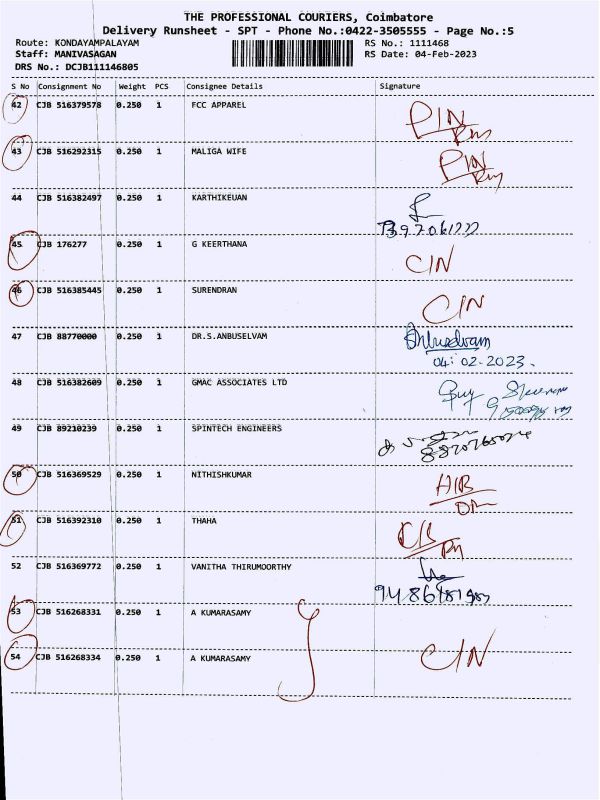 THE PROFESSIONAL COURIERS, Coimbatore
Delivery Runsheet - SPT - Phone No.:0422-3505555 - Page No.:5
Route: KONDAYAMPALAYAM RS No.: 1111468
Staff: MANIVASAGAN RS Date: 04-Feb-2023
DRS No.: DCJB111146805
S No Consignment No Weight PCS Consignee Details Signature
42 CJB 516379578 0.250 1 FCC APPAREL PIN
43 CJB 516292315 0.250 1 MALIGA WIFE PIN
44 CJB 516382497 0.250 1 KARTHIKEUAN
45 CJB 176277 0.250 1 G KEERTHANA CIN
46 CJB 516385445 0.250 1 SURENDRAN CIN
47 CJB 88770000 0.250 1 DR.S.ANBUSELVAM Anbuselvam
04.02.2023.
48 CJB 516382609 0.250 1 GMAC ASSOCIATES LTD
49 CJB 89210239 0.250 1 SPINTECH ENGINEERS
50 CJB 516369529 0.250 1 NITHISHKUMAR
51 CJB 516392310 0.250 1 THAHA
52 CJB 516369772 0.250 1 VANITHA THIRUMOORTHY
53 CJB 516268331 0.250 1 A KUMARASAMY
54 CJB 516268334 0.250 1 A KUMARASAMY CIN